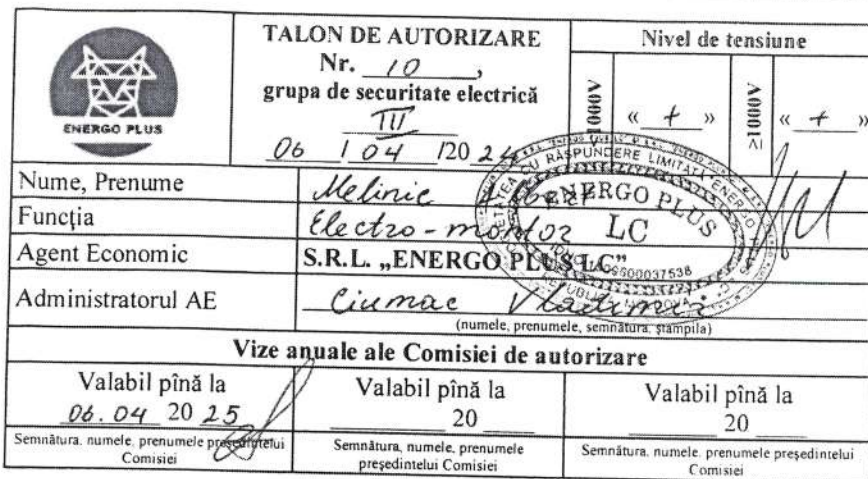 ENERGO PLUS
TALON DE AUTORIZARE
Nr. 10,
grupa de securitate electrică
III
06 / 04 /20 24
Nivel de tensiune
1000V
« + »
≥1000V
« + »
Nume, Prenume
Melinic
Funcția
Electro-montor
Agent Economic
S.R.L. „ENERGO PLUS LC”
Administratorul AE
Ciumac Vladimir
(numele, prenumele, semnătura, ștampila)
CU RĂSPUNDERE LIMITATĂ
ENERGO PLUS
LC
37538
Vize anuale ale Comisiei de autorizare
Valabil pînă la
06.04 20 25
Semnătura, numele, prenumele președintelui
Comisiei
Valabil pînă la
20
Semnătura, numele, prenumele
președintelui Comisiei
Valabil pînă la
20
Semnătura, numele, prenumele președintelui
Comisiei